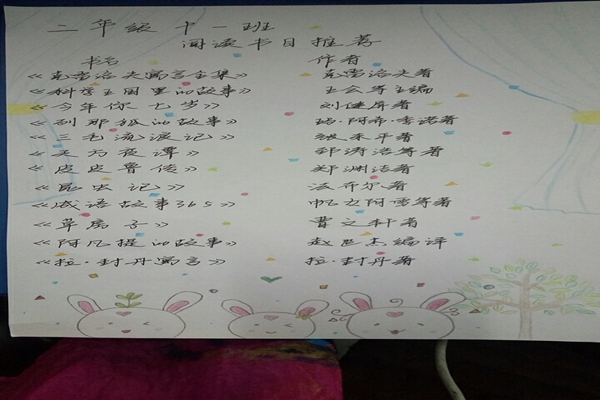 二年级十一班
阅读书目推荐
书名 作者
《克雷洛夫寓言全集》 克雷洛夫著
《科学王国里的故事》 王会等主编
《今年你七岁》 刘健屏著
《列那狐的故事》 玛·阿希·季诺著
《三毛流浪记》 张乐平著
《天方夜谭》 郅涛浩等著
《皮皮鲁传》 郑渊洁著
《昆虫记》 法布尔著
《成语故事365》 著
《草房子》 曹文轩著
《阿凡提的故事》 赵世杰编译
《拉·封丹寓言》 拉·封丹著